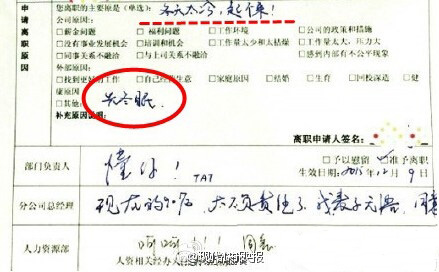 申请
您离职的主要原是(单选): 冬天太冷,起不来!
公司原因:
□薪金问题 □福利问题 □工作环境 □公司的政策和措施
□没有事业发展机会 □培训和机会 □工作量太少和太枯燥 □工作量太大、压力大
□同事关系不融洽 □与上司关系不融洽 □感到内部有不公平现象
外部原因:
□找到更好的工作 □自己经营生意 □家庭原因 □结婚 □生育 □回校深造 □健
康原因
□其他: 去冬眠
补充原因说明:
离职申请人签名:
部门负责人
□予以慰留 □准予离职
TAT
生效日期: 2015年12月9日
分公司总经理
现在的90后,太不负责任了
人力资源部
呵呵
人资相关经办人